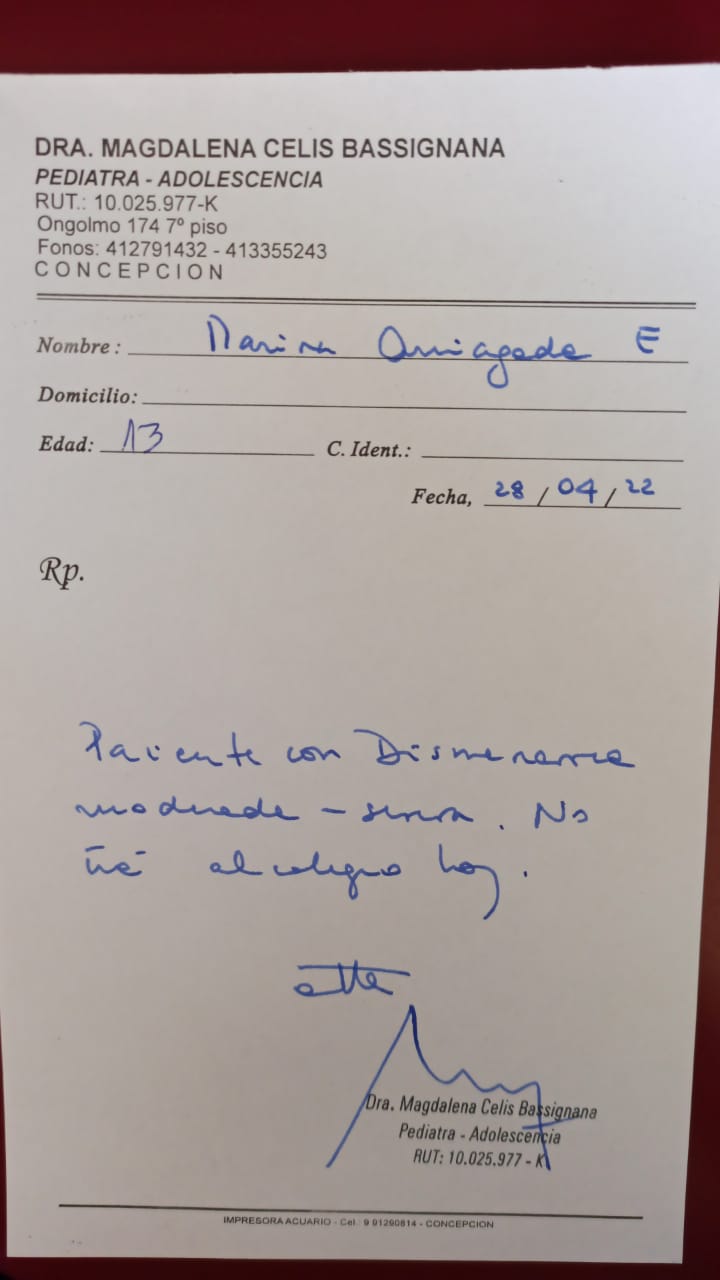 DRA. MAGDALENA CELIS BASSIGNANA
PEDIATRA - ADOLESCENCIA
RUT.: 10.025.977-K
Ongolmo 174 7º piso
Fonos: 412791432 - 413355243
CONCEPCION
Nombre: Marina Arriagada E
Domicilio:
Edad: 13 C. Ident.:
Fecha, 28 / 04 / 22
Rp.
Paciente con Dismenorrea
moderada - severa. No
irá al colegio hoy.
atte
Dra. Magdalena Celis Bassignana
Pediatra - Adolescencia
RUT: 10.025.977 - K
IMPRESORA ACUARIO - Cel.: 9 91290814 - CONCEPCION